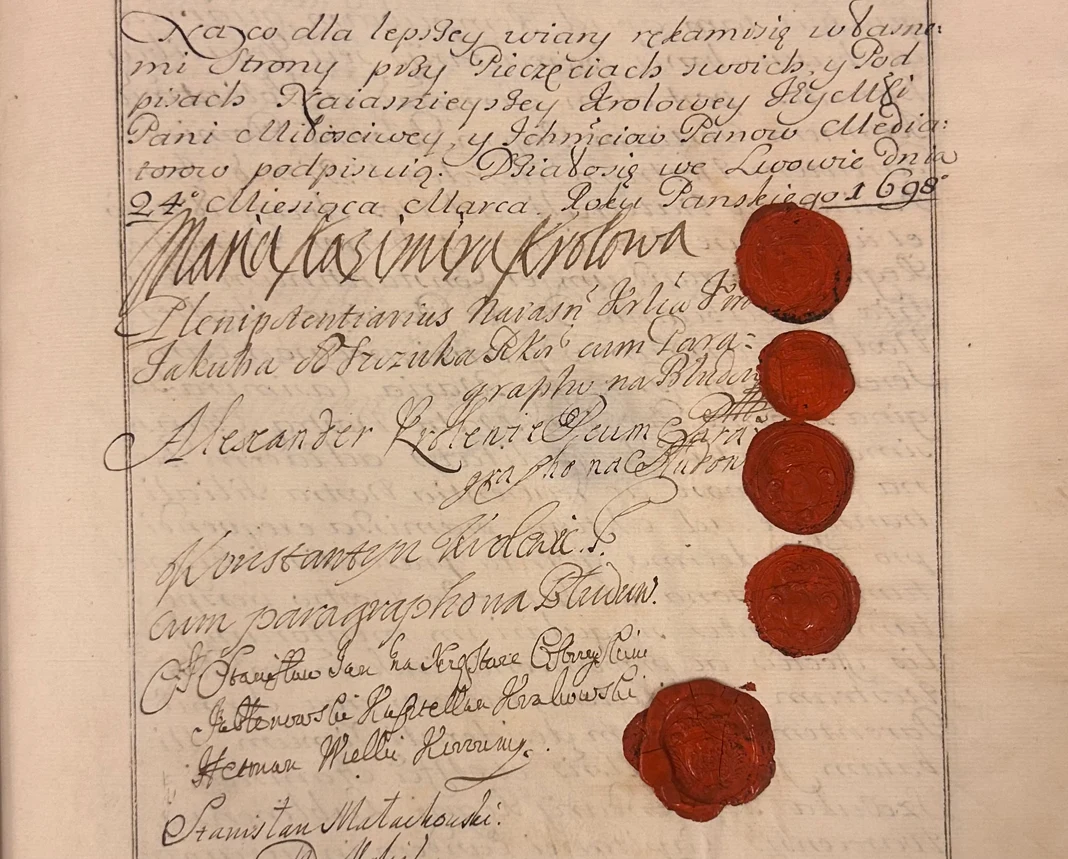 Na co dla lepszey wiary rękamisię własne:
mi Strony przy Pieczęciach swoich, y Pod
pisach Naiasnieyszey Krolowey JeyMśći
Pani Miłościwey, y Ichmćiow Panow Media:
torow podpisuią. Działosię we Lwowie dnia
24º Miesiąca Marca. Roku Panskiego 1698º
Maria Kazimira Krolowa
Plenipotentiarius Naiasń
Jakuba cum Para=
grapho na Błudow
Alexander Krolewic cum Para
grapho na
Konstantyn Krolewic. P.
cum paragrapho na Błudow.
Stanisław Jan na
Jabłonowski Kasztellan Krakowski
Hetman Wielki Koronny.
Stanisław Małachowski.